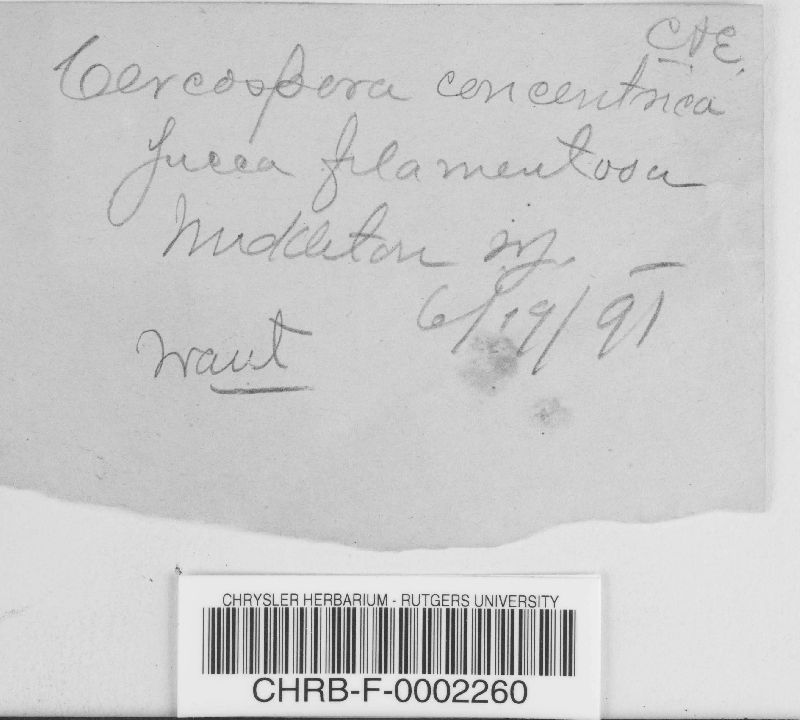 C & E.
Cercospora concentrica
Yucca filamentosa
Middleton NJ.
6/19/91
Want
CHRYSLER HERBARIUM - RUTGERS UNIVERSITY
CHRB-F-0002260